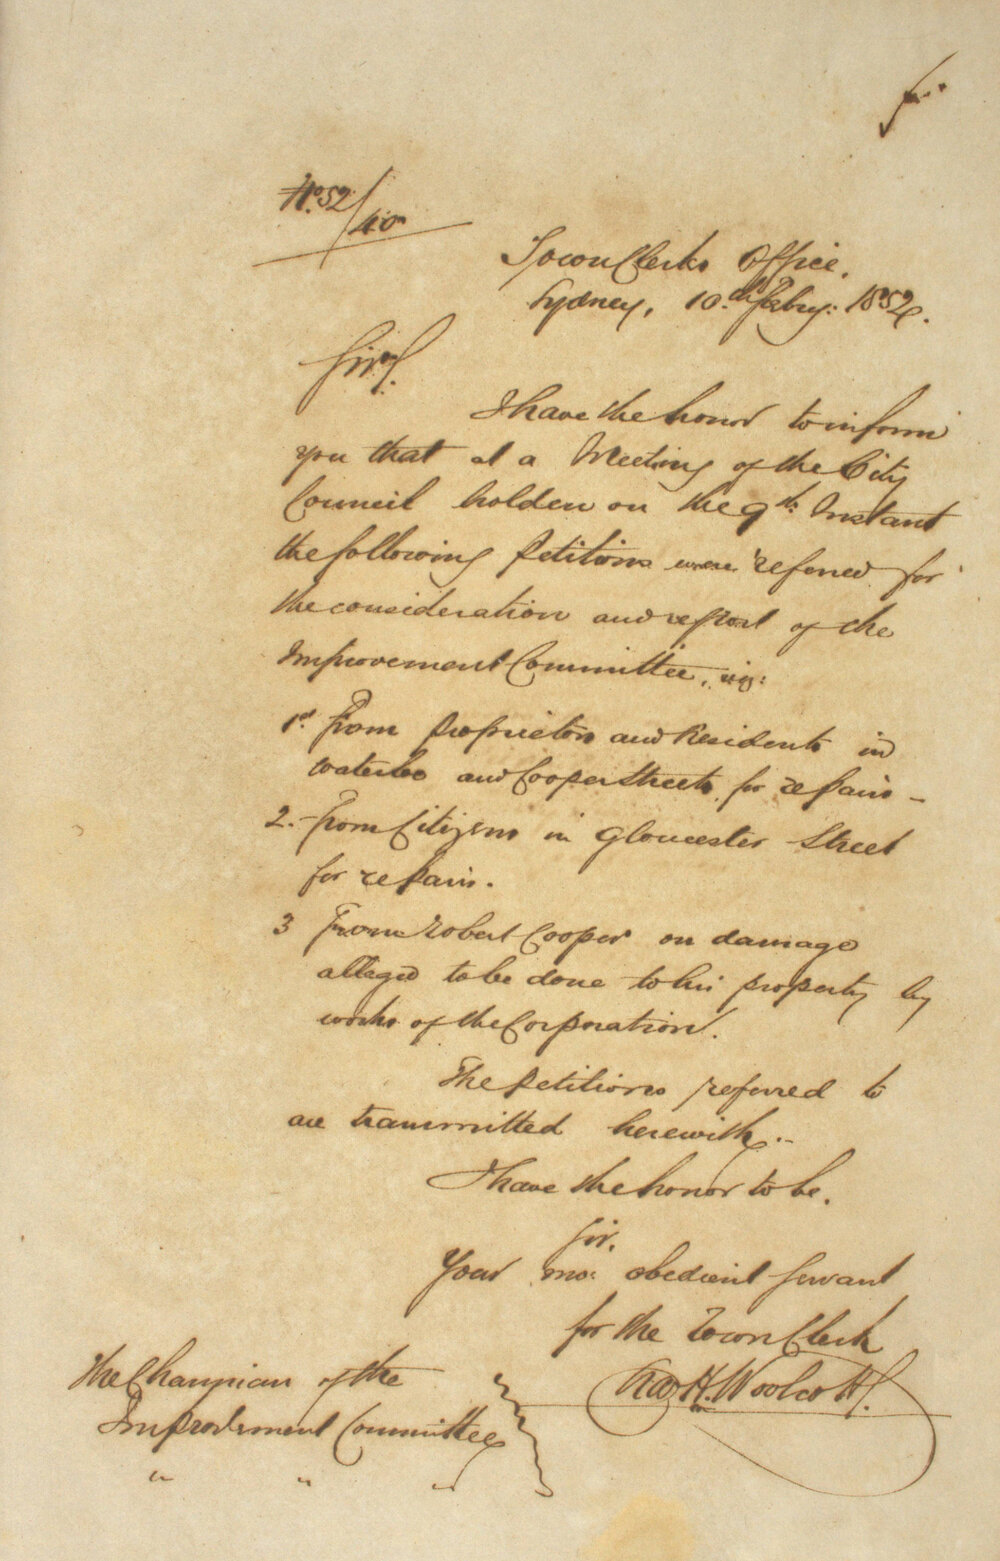 No. 52/40
Town Clerks Office.
Sydney, 10th Feby: 1852.
Sir,
I have the honor to inform
you that at a Meeting of the City
Council holden on the 9th: Instant
the following Petitions were referred for
the consideration and report of the
Improvement Committee, viz:
1st From Proprietors and Residents in
Waterloo and Cooper Streets for repairs -
2.- From Citizens in Gloucester Street
for repairs.
3 From Robert Cooper on damage
alleged to be done to his property by
works of the Corporation.
The Petitions referred to
are transmitted herewith.-
I have the honor to be.
Sir.
Your mo: obedient Servant
for the Town Clerk
Chas H. Woolcott.
The Chairman of the
Improvement Committee
" " "